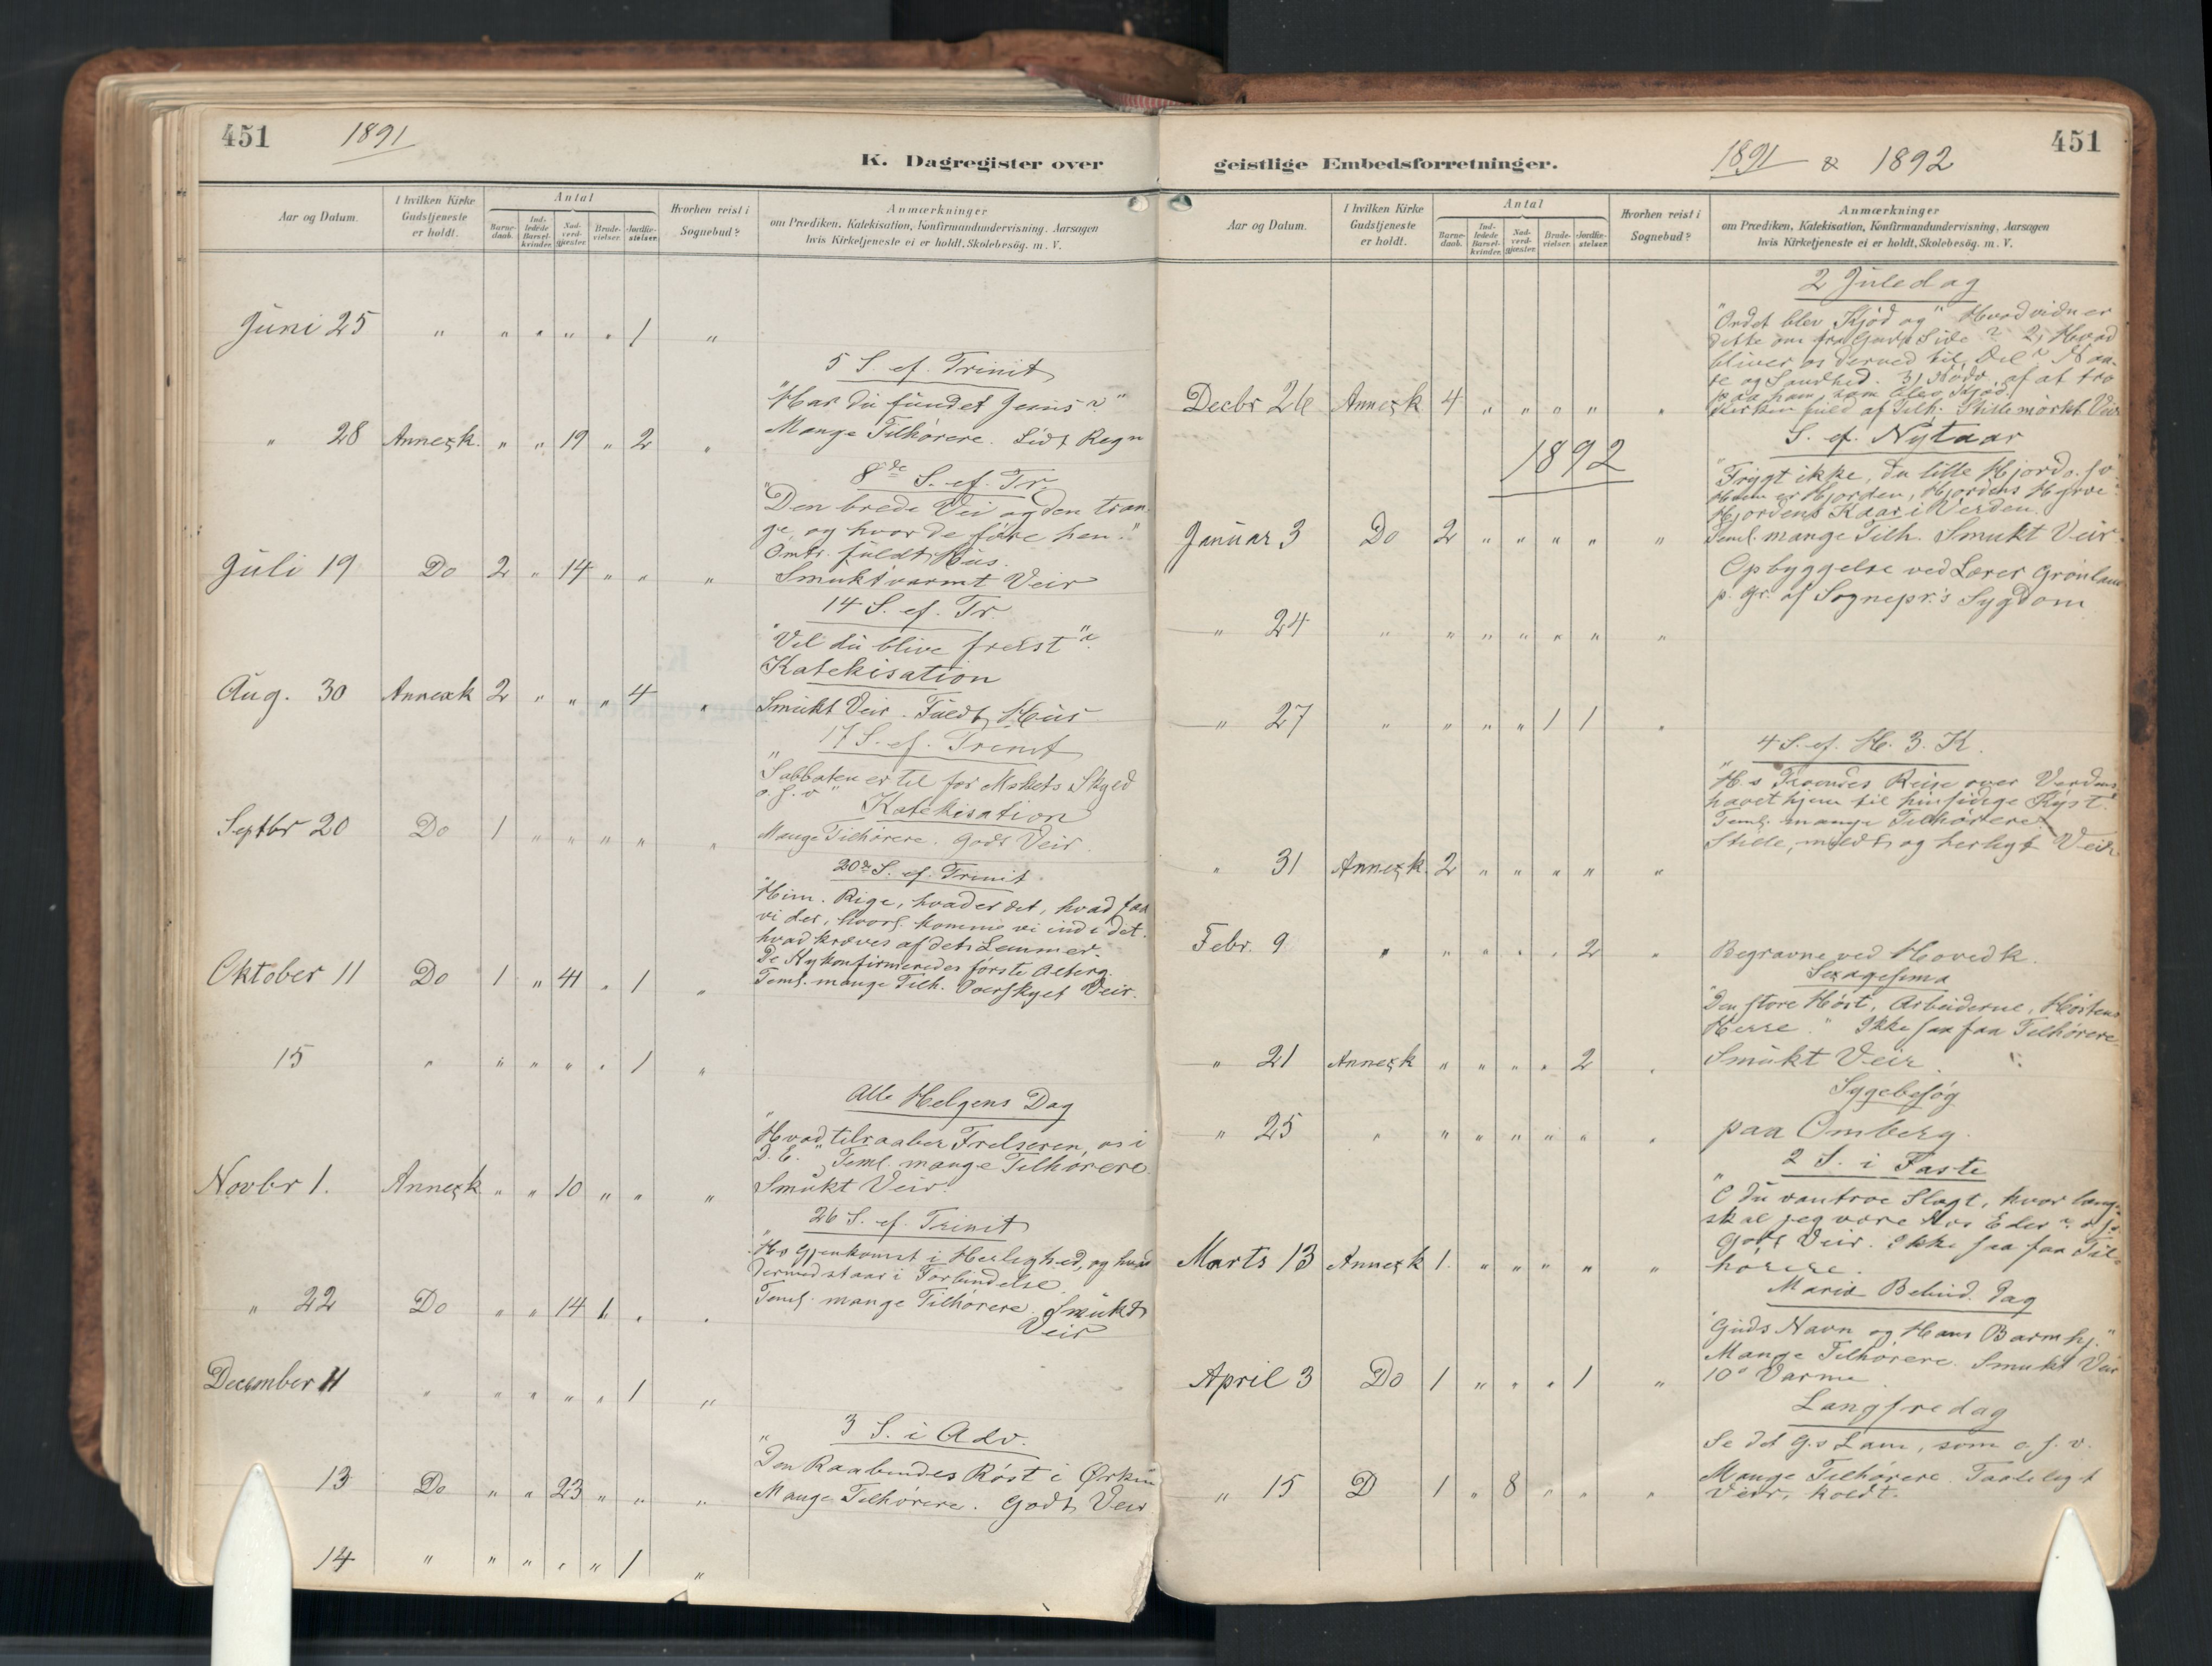 451 1891
K. Dagregister over
Aar og Datum. I hvilken Kirke Gudstjeneste er holdt. Antal Hvorhen reist i Sognebud? Anmærkninger
om Prædiken, Katekisation, Konfirmandundervisning. Aarsagen
hvis Kirketjeneste ei er holdt. Skolebesög. m. V.
Barne-daab. Ind-ledede Barsel-kvinder. Nad-verd-gjæster. Brude-vielser. Jordfæ-stelser.
Juni 25 " " " " " 1 "
5 S. ef. Trinit
"Har du fundet Jesus?"
" 28 Annexk. " " 19 " 2 " Mange Tilhørere. Lidt Regn
8de S. ef. Tr.
"Den brede Vei og den tran-
ge, og hvor de føre hen."
Omtr. fuldt Hus.
Juli 19 Do 2 " 14 " " " Smukt varmt Veir
14 S. ef. Tr.
"Vil du blive frelst"?
Katekisation
Aug. 30 Annexk 2 " " " 4 " Smukt Veir. Fuldt Hus
17 S. ef. Trinit
"Sabbaten er til for Mskets Skyld
o.s.v" Katekisation
Septbr 20 Do 1 " " " " " Mange Tilhørere. Godt Veir.
20de S. ef. Trinit.
"Him. Rige, hvad er det, hvad faa
vi der, hvorl. komme vi ind i det
hvad kræves af dets Lemmer.
De Nykonfirmeredes første Alterg.
Oktober 11 Do 1 " 41 " 1 " Teml. mange Tilh. Overskyet Veir.
15 " " " " " 1 "
Alle Helgens Dag
"Hvad tilraaber Frelseren os i
D. E." Teml. mange Tilhørere.
Novbr 1. Annexk " " 10 " " " Smukt Veir.
26 S. ef. Trinit
"Hs Gjenkomst i Herlighed, og hvad
dermed staar i Forbindelse.
" 22 Do " " 14 1 " " Teml. mange Tilhørere. Smukt
Veir
December 11 " " " " " 1 "
3 S. i Adv.
"Den Raabendes Röst i Ørken
13 Do " " 23 " " " Mange Tilhørere. Godt Veir
14 " " " " " 1 "
geistlige Embedsforretninger. 1891 & 1892 451
Aar og Datum. I hvilken Kirke Gudstjeneste er holdt. Antal Hvorhen reist i Sognebud? Anmærkninger
om Prædiken, Katekisation, Konfirmandundervisning, Aarsagen
hvis Kirketjeneste ei er holdt, Skolebesög. m. V.
Barne-daab. Ind-ledede Barsel-kvinder. Nad-verd-gjæster. Brude-vielser. Jordfæ-stelser.
2 Juledag
"Ordet blev Kjød og" Hvad vidner
dette om fra Guds Side? 2, Hvad
bliver os derved til Del? Naa-
de og Sandhed. 3) af at tro
paa ham, som blev Kjød.
Decbr 26 Annexk 4 " " " " " Kirken fuld af Tilh. Stille mörkt Veir
1892
S. ef. Nytaar
"Frygt ikke, du lille Hjord o.s.v."
Hvem er Hjorden, Hjordens Hyrde
Hjordens Kaar i Verden.
Januar 3 Do 2 " " " " " Teml. mange Tilh. Smukt Veir.
Opbyggelse ved Lærer Grønlan
p. Gr. af Sognepr.s Sygdom
" 24 " " " " " " "
" 27 " " " " 1 1 "
4 S. ef. H. 3. K.
"H.s Troendes Reise over Verdens
havet hjem til hinsidige Kyst."
Teml. mange Tilhørere
Stille, mildt og herligt Veir
" 31 Annexk. 2 " " " " "
Febr. 9 " " " " " 2 " Begravne ved Hovedk.
Sexagesima
"Den store Høst, Arbeiderne, Høstens
Herre." Ikke saa faa Tilhørere
" 21 Annexk " " " " 2 " Smukt Veir.
Sygebesøg
" 25 " " " " " " " paa Omberg.
2 S. i Faste
"O du vantroe Slægt, hvor længe
skal jeg være hos Eder? o.s.
Godt Veir. Ikke saa faa Til-
Marts 13 Annexk 1. " " " " " hørere.
Mariæ Bebud. Dag
"Guds Navn og Hans Barmhj."
Mange Tilhørere. Smukt Veir
April 3 Do 1 " " " 1 " 10° Varme
Langfredag
Se det G.s Lam, som o.s.v.
Mange Tilhørere. Taaleligt
" 15 D 1 " 8 " " " Veir, koldt.